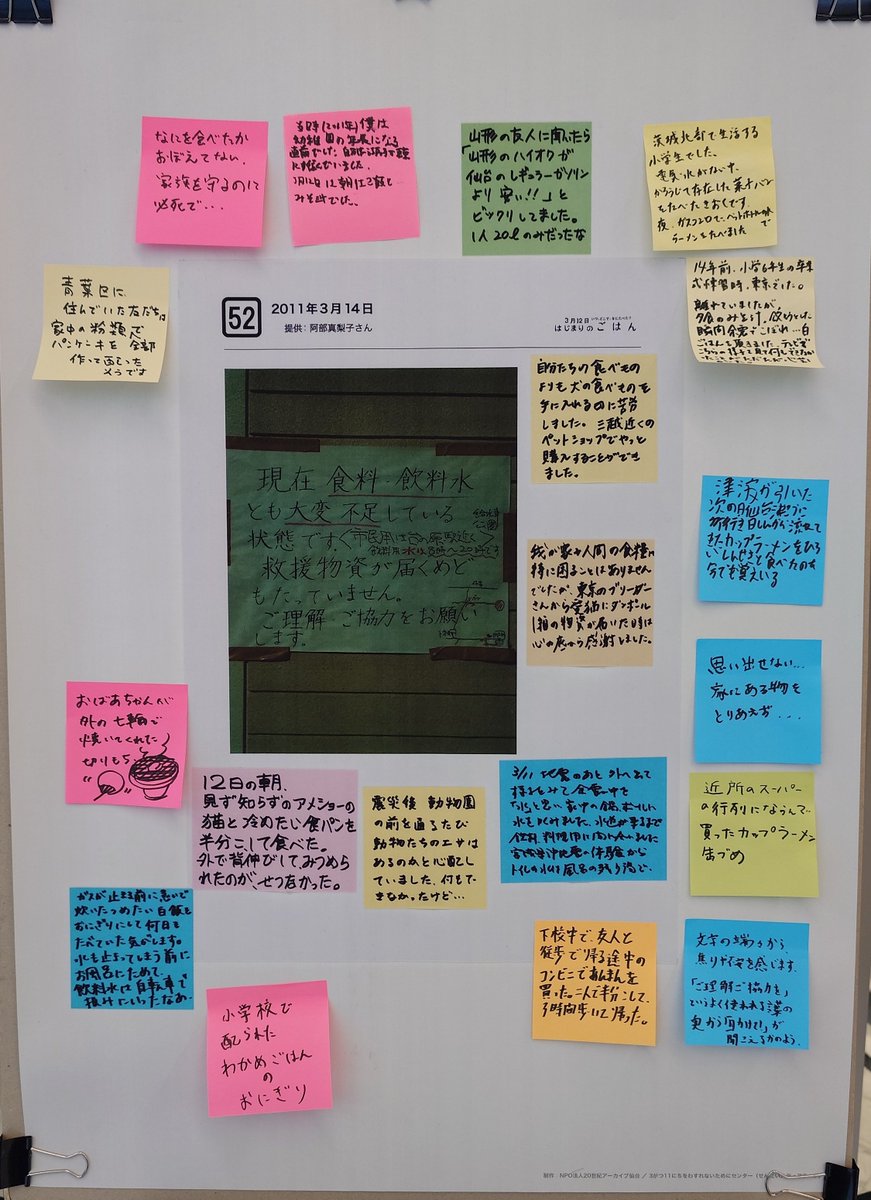 なにを食べたか
おぼえてない.
家族を守るのに
必死で・・・
当時(2011年)僕は
幼稚園の年長になる
直前でした。
3月12日は朝はご飯と
みそ汁でした。
山形の友人に聞いたら
「山形のハイオクが
仙台のレギュラーガソリン
より安い!!」と
ビックリしてました。
1人20ℓのみだったな
茨城北部で生活する
小学生でした。
電気・水がない中、
かろうじて存在した菓子パン
をたべたきおくです。
夜、ガスコンロで、ペットボトルの水で
ラーメンをたべました
青葉区に
住んでいた友だちは
家中の粉類で
パンケーキを全部
作って配った
そうです
14年前、小学6年生の卒業
式練習時、東京でした。
離れていましたが、
夕食のみそ汁、
ごはんを頂きました。テレビで
52
2011年3月14日
提供:阿部真梨子さん
3月12日
はじまりのごはん
現在 食料・飲料水
とも大変不足している
状態です。
救援物資が届くめど
もたっていません。
ご理解・ご協力をお願い
します。
自分たちの食べもの
よりも犬の食べものを
手に入れるのに苦労
しました。三越近くの
ペットショップでやっと
購入することができ
ました。
我が家は人間の食糧は
特に困ることはありません
でしたが、東京のブリーダー
さんから愛猫にダンボール
1箱の物資が届いた時は
心の底から感謝しました。
津波が引いた
次の日仙台港に
きたカップラーメンをひろ
い食べたのを
今でも覚えいる
思い出せない...
家にある物を
とりあえず...
おばあちゃんが
外の七輪で
焼いてくれた
切りもち
12日の朝、
見ず知らずのアメショーの
猫と冷めたい食パンを
半分こして食べた。
外で背伸びしてみつめら
れたのが、せつなかった。
震災後 動物園
の前を通るたび
動物たちのエサは
あるのかと心配し
ていました、何もで
きなかったけど…
3/11 地震のあと 外へ出て
水をくみました。
飲用、料理用に
宮城県沖地震の体験から
トイレの水は風呂の残り湯で、
近所のスーパー
の行列にならんで
買ったカップラーメン
缶づめ
ガスが止まる前に急いで
炊いたつめたい白飯を
おにぎりにして何日も
たべていた気がします。
水も止まってしまう前に
お風呂にためて、
飲料水は自転車で
小学校で
配られた
わかめごはん
の
おにぎり
下校中で、友人と
徒歩で帰る途中の
コンビニであんまんを
買った。二人で半分こして、
3時間歩いて帰った。
文字の端々から、
焦りや不安を感じます。
「ご理解ご協力を」
というよく使われる言葉の
奥から「助けて!」が
聞こえるかのよう.
制作 NPO法人20世紀アーカイブ仙台 / 3がつ11にちをわすれないためにセンター